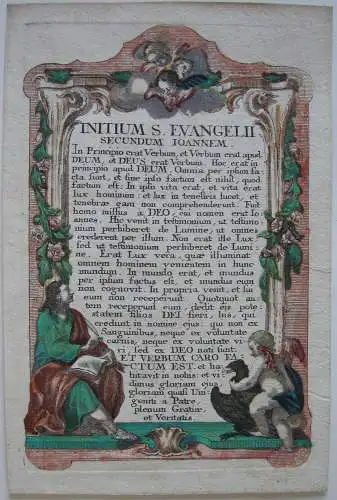 INITIUM S. EVANGELII
SECUNDUM IOANNEM.
In Principio erat Verbum, et Verbum erat apud
DEUM, et DEUS erat Verbum. Hoc erat in
principio apud DEUM, Omnia per ipsum fa
cta sunt, et sine ipso factum est nihil, quod
factum est: In ipso vita erat, et vita erat
lux hominem: et lux in tenebris lucet, et
tenebræ eam non comprehenderunt. Fuit
homo missus à DEO, cui nomen erat Io
annes. Hic venit in testimonium, ut testimo
nium perhiberet de Lumine, ut omnes
crederent per illum. Non erat ille Lux,
sed ut testimonium perhiberet de Lumi
ne. Erat Lux vera, quæ illuminat
omnem hominem venientem in hunc
mundum. In mundo erat, et mundus
per ipsum factus est, et mundus eum
non cognovit. In propria venit, et sui
eum non receperunt. Quotquot au
tem receperunt eum, dedit eis pote:
statem filios DEI fieri, his, qui
credunt in nomine ejus, qui non ex
Sanguinibus, neque ex voluntate
carnis, neque ex voluntate vi
ri, sed ex DEO nati sunt.
ET VERBUM CARO FA:
CTUM EST, et ha
bitavit in nobis: et vi
dimus gloriam ejus,
gloriam quasi Uni
geniti a Patre,
plenum Gratiæ,
et Veritatis.